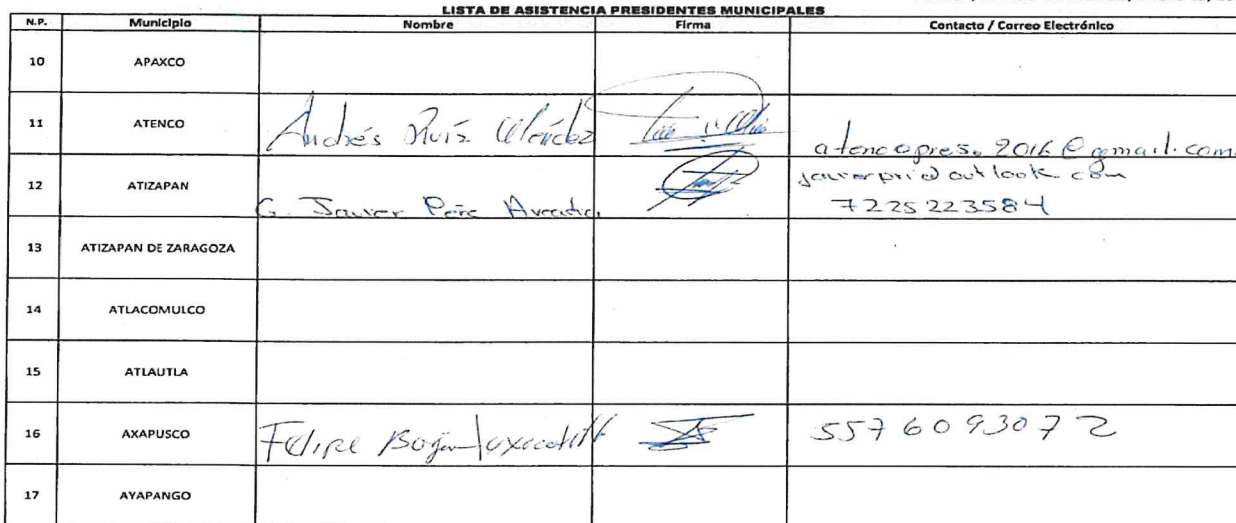 LISTA DE ASISTENCIA PRESIDENTES MUNICIPALES
N.P. Municipio Nombre Firma Contacto / Correo Electrónico
10 APAXCO
11 ATENCO Andrés Ruíz Méndez atencopres. 2016@gmail.com
12 ATIZAPAN G. Javier javierpri@outlook com
7225223584
13 ATIZAPAN DE ZARAGOZA
14 ATLACOMULCO
15 ATLAUTLA
16 AXAPUSCO Felipe 5576093072
17 AYAPANGO